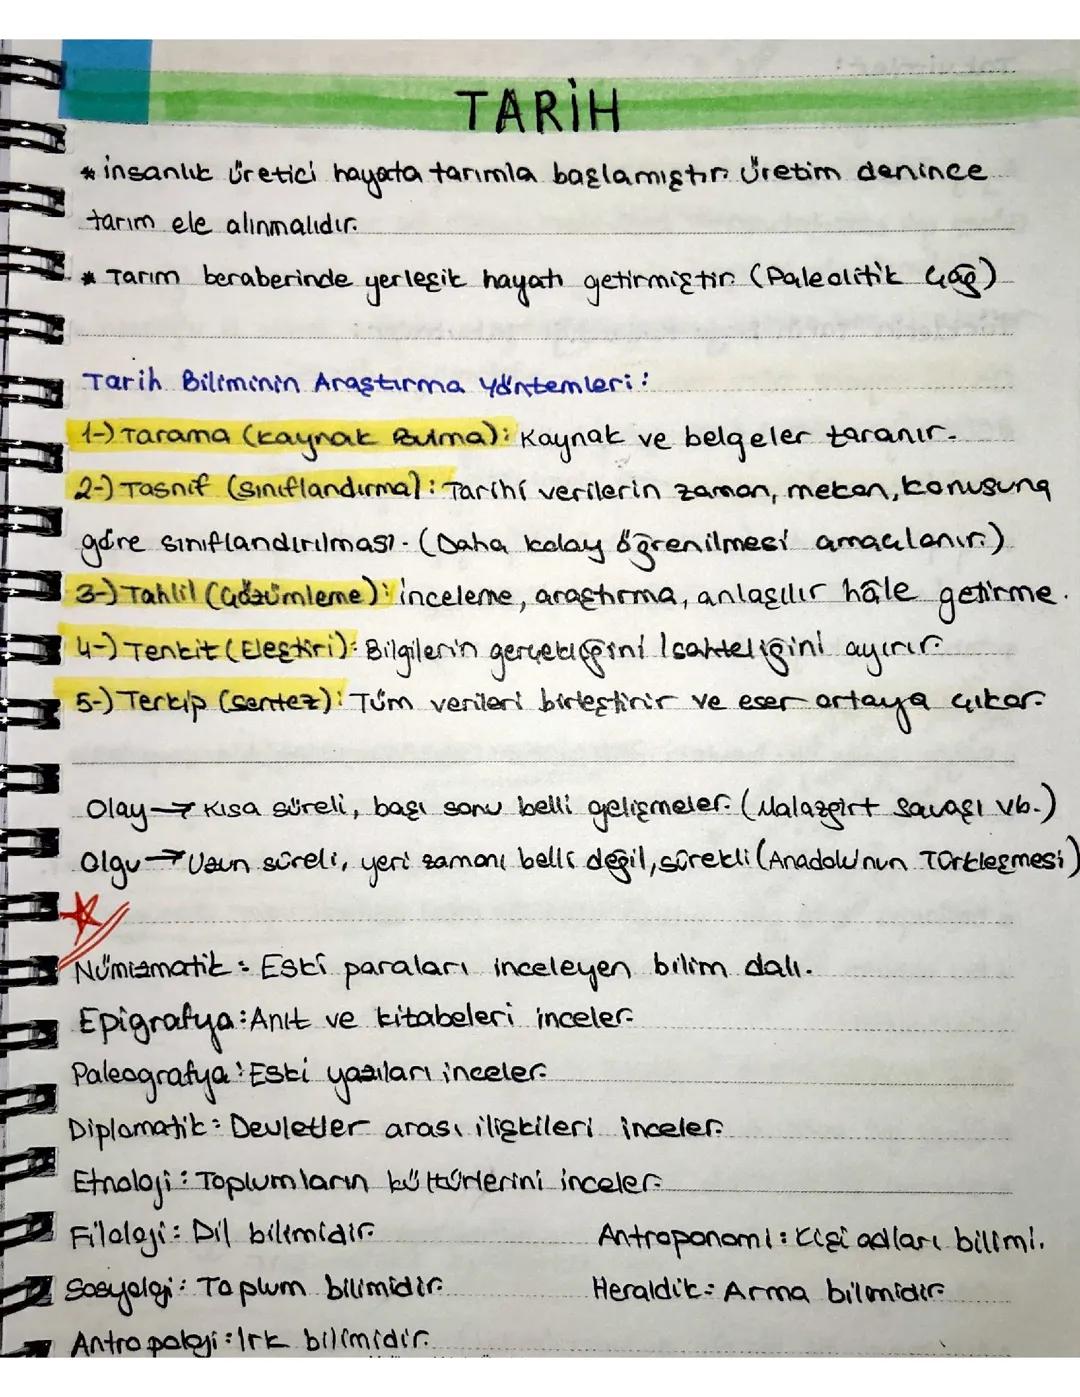 TARİH
* insanlık üretici hayata tarımla başlamıştır. Üretim denince
tarım ele alınmalıdır.
* Tarım beraberinde yerleşik hayatı getirmiştir. (Paleolitik Çağ)
Tarih Biliminin Araştırma Yöntemleri:
1-) Tarama (Kaynak Bulma): Kaynak ve belgeler taranır.
2-) Tasnif (sınıflandırma): Tarihi verilerin zaman, mekan, konusuna
göre sınıflandırılması. (Daha kolay öğrenilmesi amaçlanır.)
3-) Tahlil (Çözümleme): inceleme, araştırma, anlaşılır hâle getirme.
4-) Tenkit (Eleştiri): Bilgilerin gerçekliğini / sahteliğini ayırır.
5-) Terkip (Sentez): Tüm verileri birleştirir ve eser ortaya çıkar.
Olay → Kısa süreli, başı sonu belli gelişmeler. (Malazgirt Savaşı vb.)
Olgu → Uzun süreli, yeri zamanı belli değil, sürekli (Anadolu'nun Türkleşmesi)
Nümizmatik: Eski paraları inceleyen bilim dalı.
Epigrafya: Anıt ve kitabeleri inceler.
Paleografya: Eski yazıları inceler.
Diplomatik: Devletler arası ilişkileri inceler.
Etnoloji: Toplumların kültürlerini inceler.
Filoloji: Dil bilimidir. Antroponomi: Kişi adları bilimi.
Sosyoloji: Toplum bilimidir. Heraldik: Arma bilimidir.
Antropoloji: Irk bilimidir.